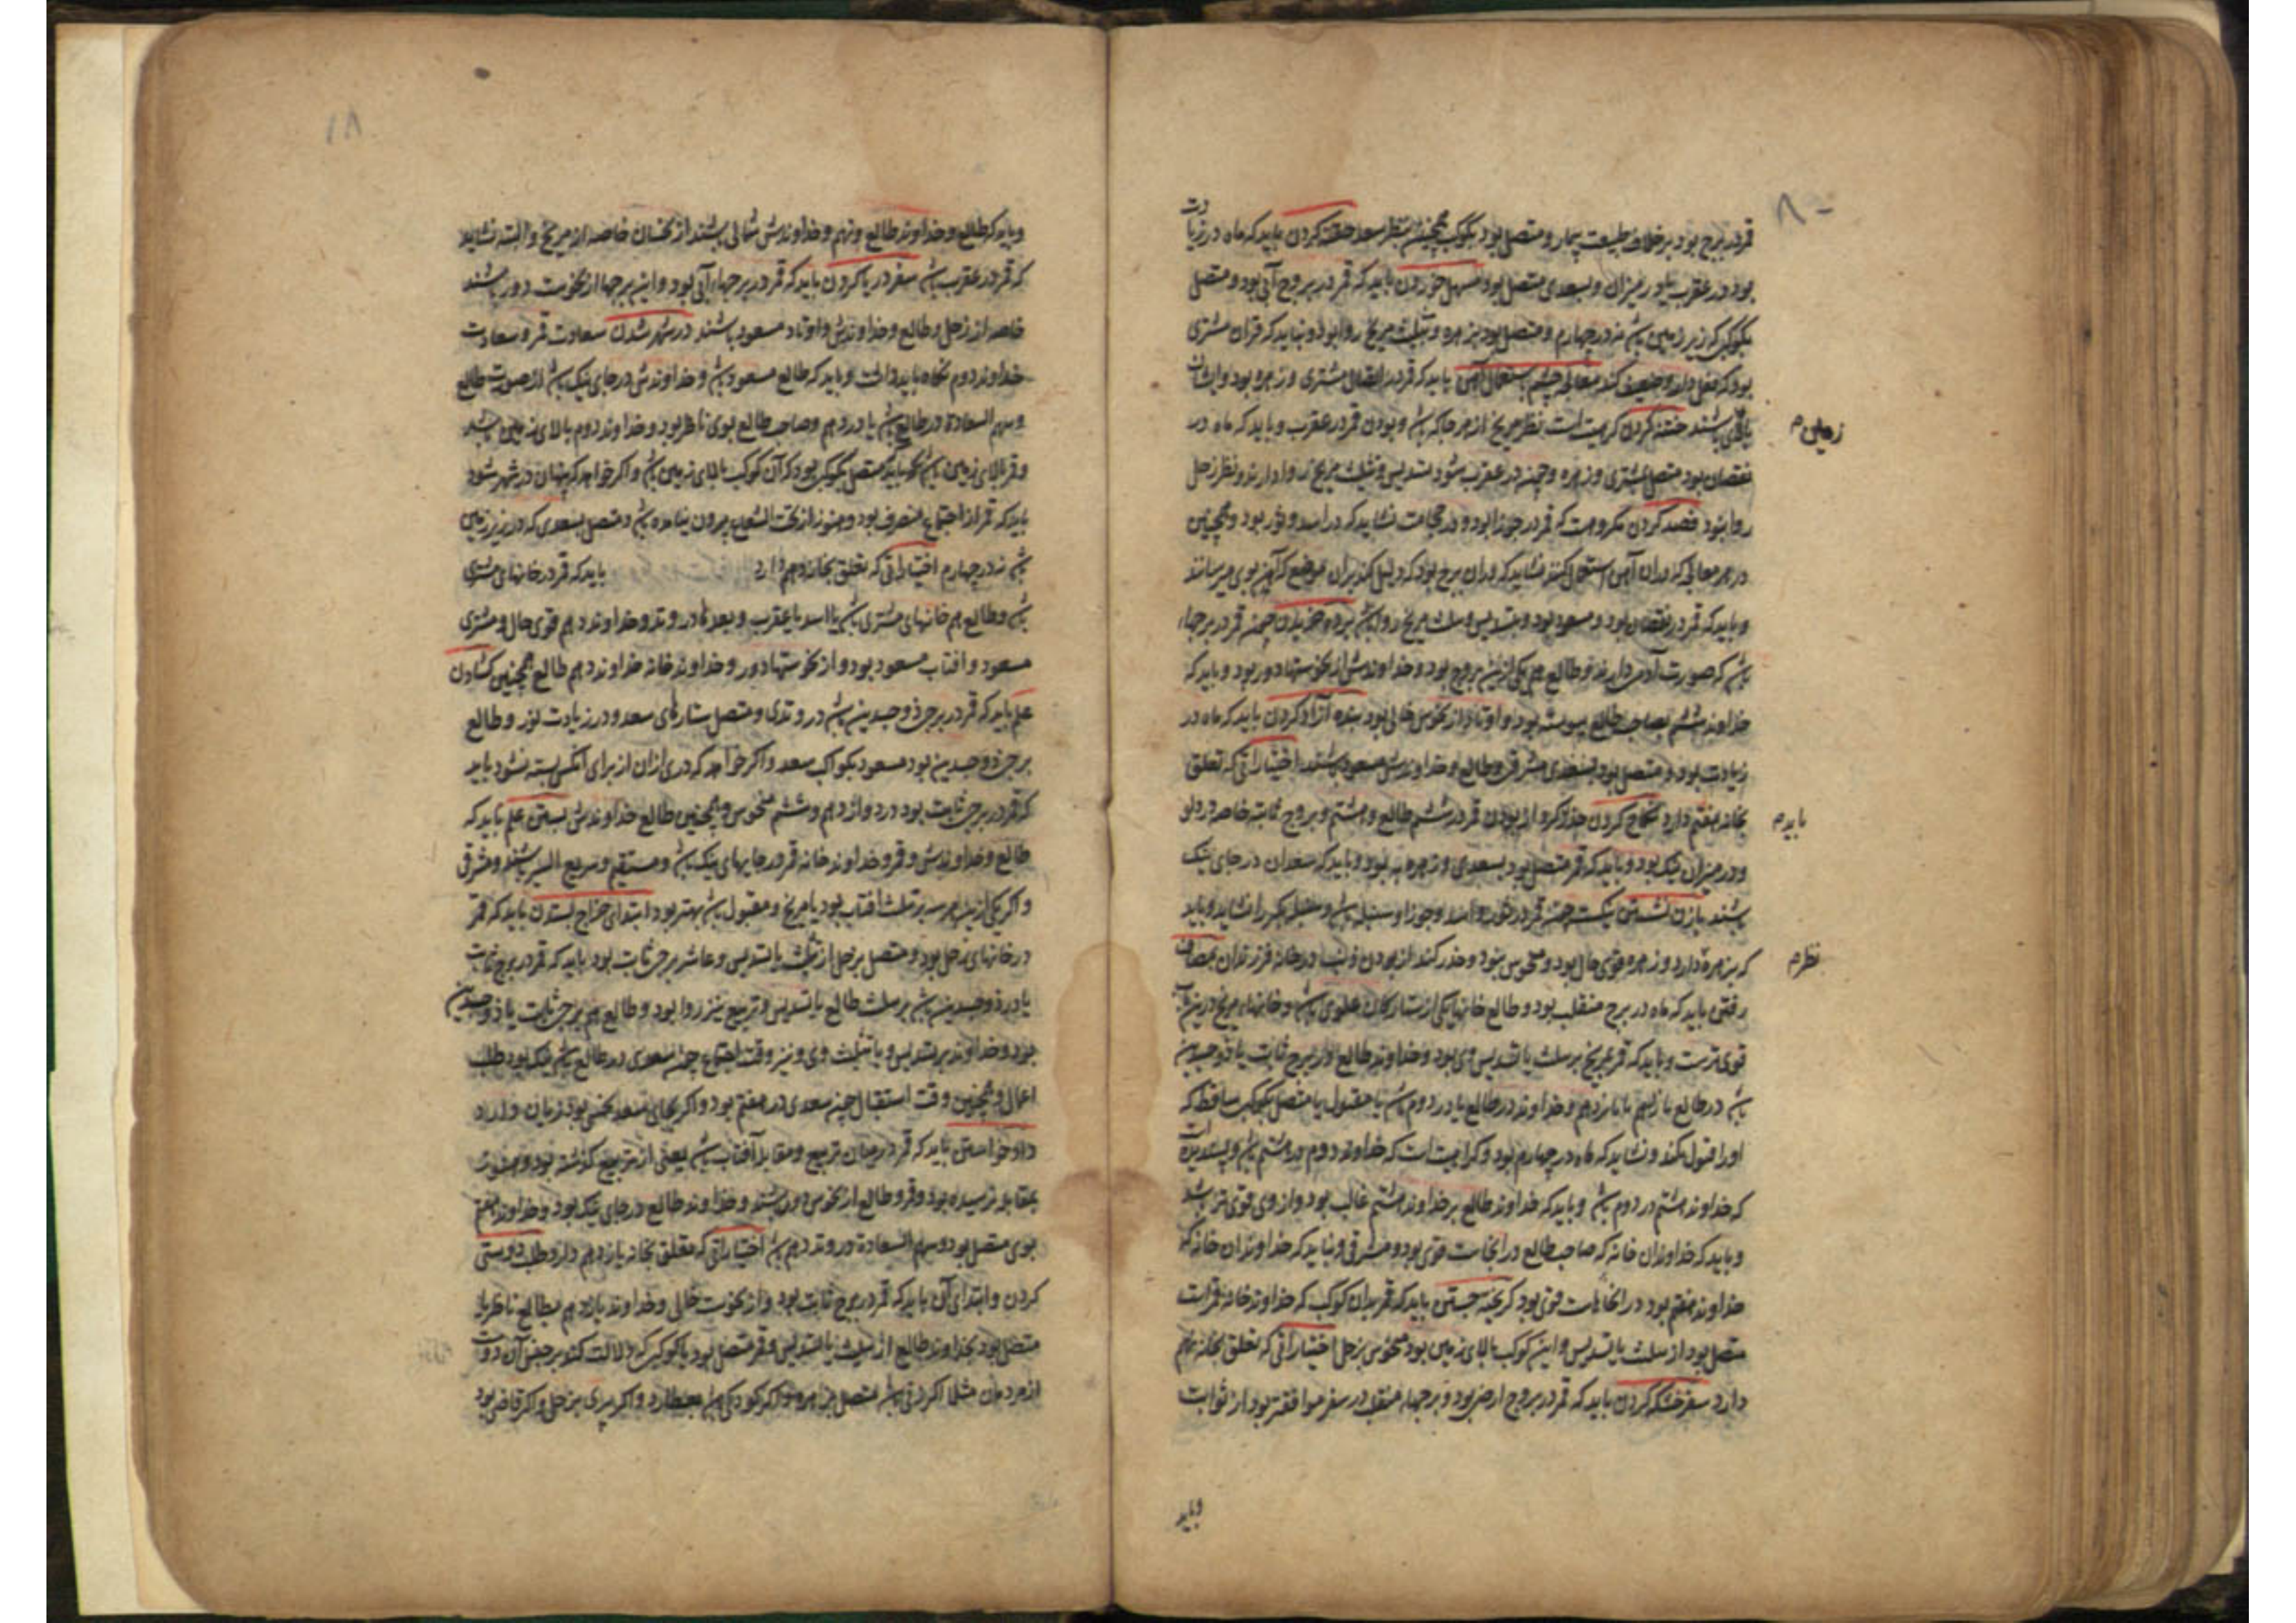 ۸۰
قمر در برج بود بر خلاف طبیعت بیمار و متصل بود بکوکب همچنین بنظر سعد حقنه کردن باید که ماه در زیادت
بود در عقرب یا در میزان و بسعدی متصل بود مسهل خوردن باید که قمر در بروج آبی بود و متصل
بکوکبی که زیر زمین باشد نه در چهارم و متصل بود بزهره و تثلیث مریخ روا بود و نباید که قران مشتری
بود که فعل دارو ضعیف کند معالجه چشم باستعمال آهن باید که قمر در اتصال مشتری و زهره بود و ایشان
بالای باشند ختنه کردن کرهیت است نظر مریخ از هر جا که باشد و بودن قمر در عقرب و باید که ماه در
زمین م
نقصان بود متصل بمشتری و زهره و چون در عقرب شود تسدیس و تثلیث مریخ را روا دارند و نظر زحل
روا نبود فصد کردن مکروهست که قمر در جوزا بود و در حجامت نشاید که در اسد و ثور بود و همچنین
در هر معالجه که در آن آهن استعمال کنند نشاید که در آن برج بود که دلیل کند بران موضع که آهن بوی میرسانند
و باید که قمر در نقصان بود و مسعود بود و تسدیس و تثلیث مریخ روا باشد برده خریدن چون قمر در برجهاء
باشد که صورت آدمی دارند و طالع هم یکی ازین بروج بود و خداوندش از نحوستها دور بود و باید که
خداوند ششم بصاحب طالع پیوسته بود و اوتاد از نحوس خالی بود بنده آزاد کردن باید که ماه در
زیادت بود و متصل بود بسعدی مشرقی و طالع و خداوندش مسعود باشند اختیاراتی که تعلق
بخانه هفتم دارد نکاح کردن حذر کرد از بودن قمر در ششم طالع و هشتم و بروج ثابته خاصه در دلو
باید م
و در میزان نیک بود و باید که قمر متصل بود بسعدی و زهره به بود و باید که سعدان در جای نیک
باشند با زن نشستن نیکست چون قمر در ثور و اسد و جوزا و سنبله باشد و سنبله بکر را نشاید و باید
که بزهره دارد و زهره قوی حال بود و منحوس نبود و حذر کند از بودن ذنب در خانه فرزندان بمصاف
نظر م
رفتن باید که ماه در برج منقلب بود و طالع خانهای یکی از ستارگان علوی باشد و خانهاء مریخ درین باب
قوی ترست و باید که قمر بمریخ بتثلیث یا تسدیس وی بود و خداوند طالع در برج ثابت یا ذو جسدین
باشد در طالع یا دهم یا یازدهم و خداوند در طالع یا در دوم باشد یا مقبول یا متصل بکوکب ساقط که
او را قبول نکند و نشاید که ماه در چهارم بود و کراهیت است که خداوند دوم در هشتم باشد و پسندیده است
که خداوند هشتم در دوم باشد و باید که خداوند طالع بر خداوند هشتم غالب بود و از وی قوی تر باشد
و باید که خداوندان خانه که صاحب طالع در آنجاست قوی بود و مشرقی و نباید که خداوندان خانه که
خداوند هفتم بود در آنجا هست قوی بود گریخته جستن باید که قمر بدان کوکب که خداوند خانه قمر است
متصل بود از تثلیث یا تسدیس و این کوکب بالای زمین بود منحوس بزحل اختیاراتی که تعلق بخانه نهم
دارد سفر خشک کردن باید که قمر در بروج ارضی بود و برجهاء منقلب در سفر موافقتر بود از ثوابت
وباید
۸۱
و باید که طالع و خداوند طالع و نهم و خداوندش خالی باشند از نحسان خاصه از مریخ و البته نشاید
که قمر در عقرب باشد سفر دریا کردن باید که قمر در برجهاء آبی بود و این برجها از نحوست دور باشند
خاصه از زحل و طالع و خداوندش و اوتاد مسعود باشند در شهر شدن سعادت قمر و سعادت
خداوند دوم نگاه باید داشت و باید که طالع مسعود باشد و خداوندش در جای نیک باشد از صورت طالع
و سهم السعادة در طالع باشد یا در دهم و صاحب طالع بوی ناظر بود و خداوند دوم بالای زمین باشد
و قمر بالای زمین باشد نباید متصل بکوکبی بود که آن کوکب بالای زمین باشد و اگر خواهد که پنهان در شهر شود
باید که قمر از اجتماع منصرف بود و هنوز از تحت الشعاع بیرون نیامده باشد و متصل بسعدی که در زیر زمین
باشد نه در چهارم اختیاراتی که تعلق بخانه دهم دارد باید که قمر در خانهای مشتری
باشد و طالع هم خانهای مشتری باشد یا اسد یا عقرب و بعد ها در وتد و خداوند دهم قوی حال و مشتری
مسعود و آفتاب مسعود بود و از نحوستها دور و خداوند خانه خداوند دهم طالع همچنین گشادن
علم باید که قمر در برج ذو جسدین باشد در وتدی و متصل ستارهای سعد و در زیادت نور و طالع
برج ذو جسدین بود مسعود بکواکب سعد و اگر خواهد که دری ازان از برای آنکس بسته نشود باید
که قمر در برج ثابت بود در دوازدهم و ششم منحوس و همچنین طالع خداوندش بستن علم باید که
طالع و خداوندش و قمر و خداوند خانه قمر در جایهای نیک باشد و مستقیم و سریع السیر باشند و مشرقی
و اگر یکی ازین هر سه بر تثلیث آفتاب بود یا مریخ و مقبول باشد بهتر بود ابتدای خراج بستدن باید که قمر
در خانهای زحل بود و متصل بزحل از تثلیث یا تسدیس و عاشر برج ثابت بود باید که قمر در برج ثابت
یا در ذو جسدین باشد بر تثلیث طالع یا تسدیس و تربیع نیز روا بود و طالع هم برج ثابت یا ذو جسدین
بود و خداوند بر تسدیس و یا تثلیث وی و نیز وقت اجتماع چون سعدی در طالع باشد نیک بود طلب
اعمال و همچنین وقت استقبال چون سعدی در هفتم بود و اگر بجای سعد نحس بود زیان دارد
داد خواستن باید که قمر در میان تربیع و مقابله آفتاب باشد یعنی از تربیع گذشته بود و هنوز
بمقابله نرسیده بود و قمر و طالع از نحوس دور باشند و خداوند طالع در جای نیک بود و خداوند هفتم
بوی متصل بود و سهم السعادة در وتد دهم باشد اختیاراتی که تعلق بخانه یازدهم دارد طلب دوستی
کردن و ابتدای آن باید که قمر در برج ثابت بود و از نحوست خالی و خداوند یازدهم بطالع ناظر یا
متصل بود بخداوند طالع از تثلیث یا تسدیس و قمر متصل بود با کوکبی که دلالت کند بر جنس آن دوست
از مردمان مثلا اگر زنی باشد متصل بزهره و اگر کودکی باشد بعطارد و اگر پیری بزحل و اگر قاضی بود